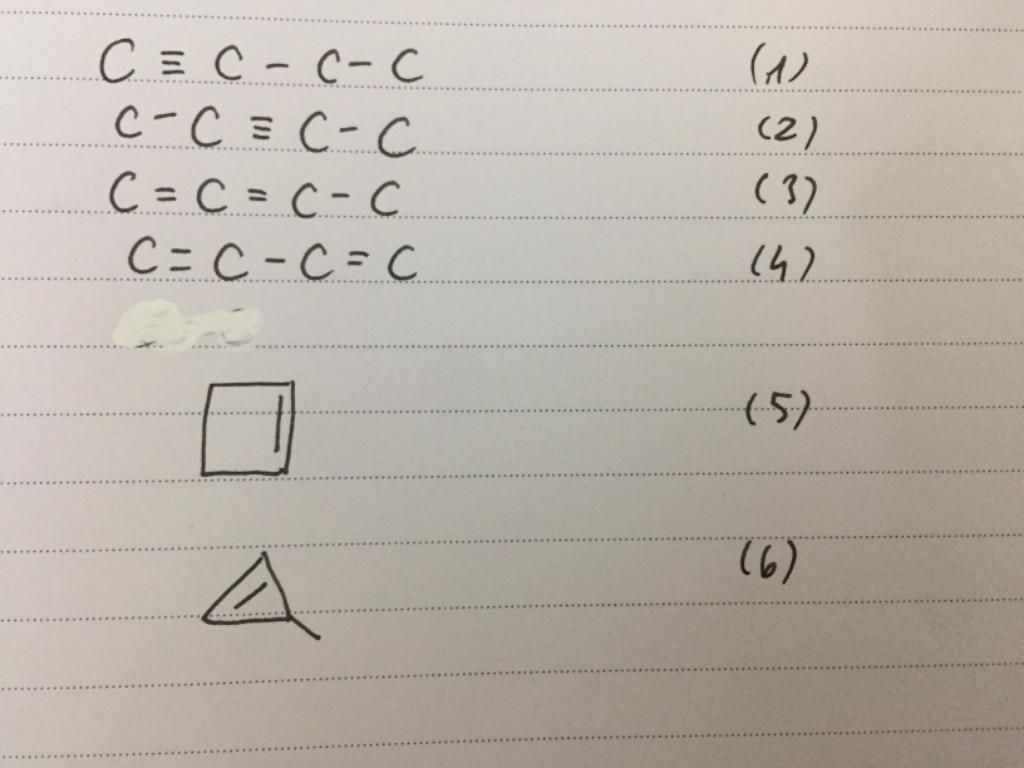 C ≡ C - C - C (1)
C - C ≡ C - C (2)
C = C = C - C (3)
C = C - C = C (4)
(5)
(6)